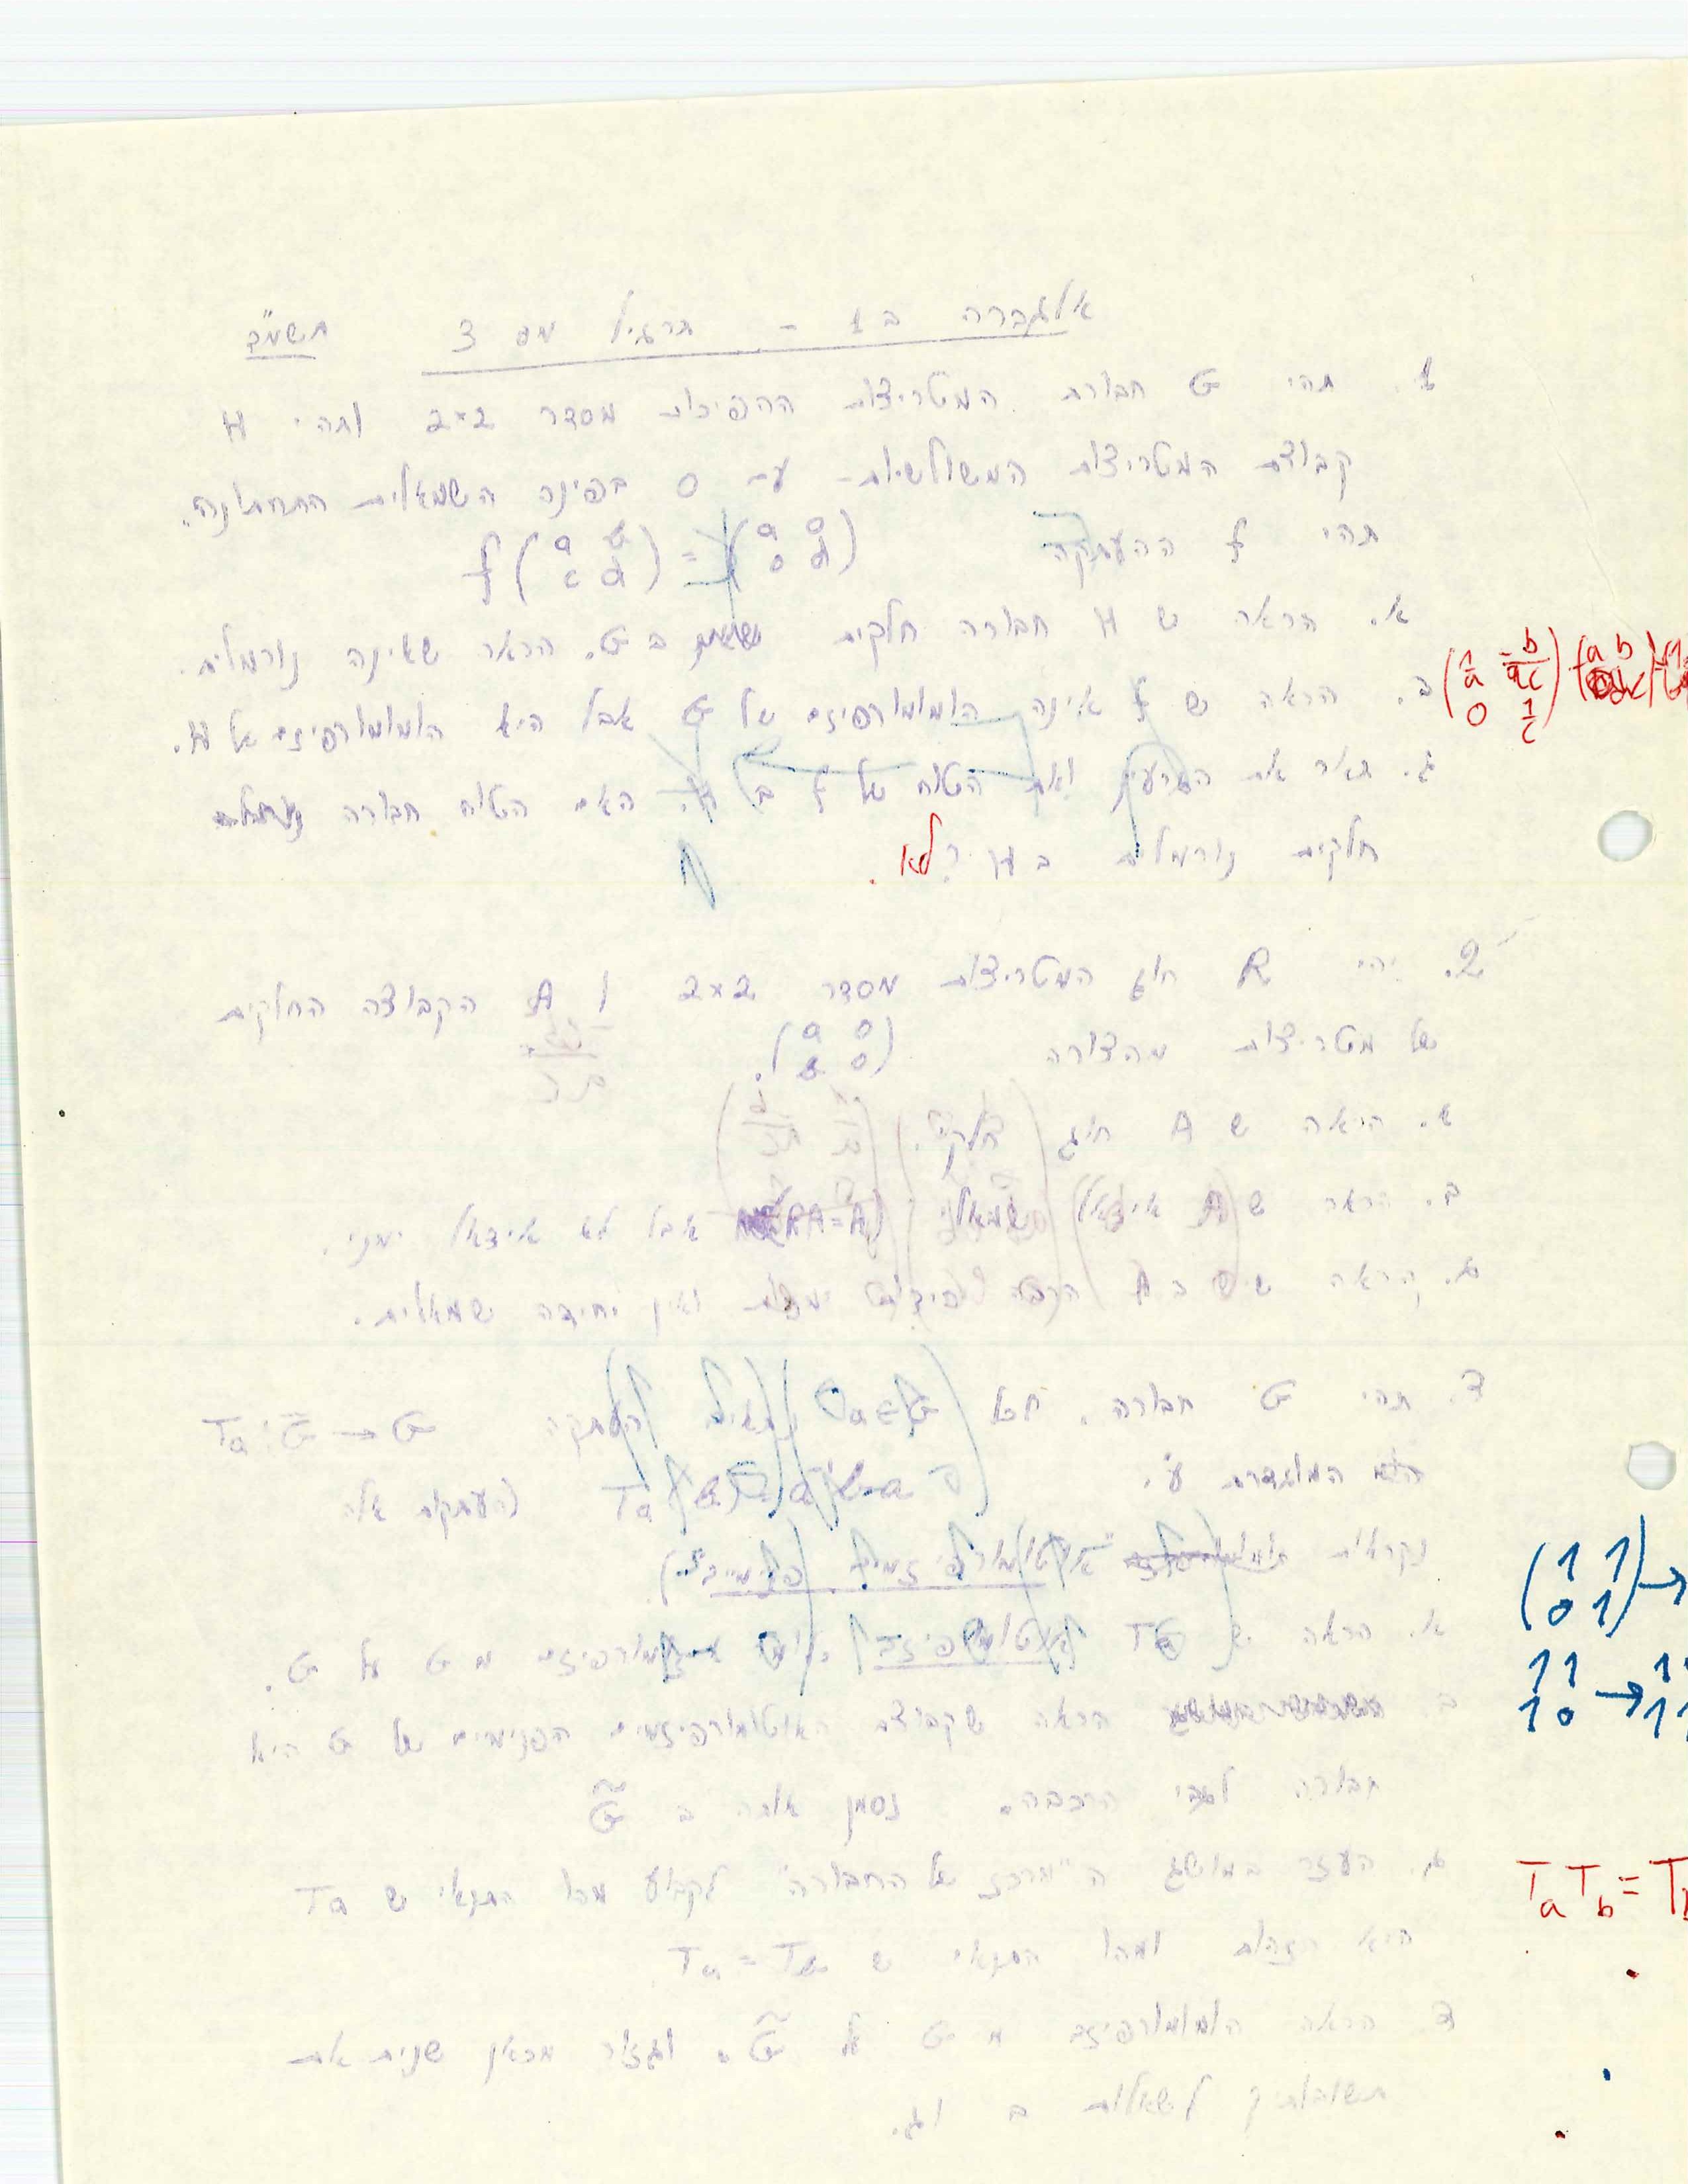 אלגברה ב 1 - תרגיל מס 3 תשמ"ב
1. תהי G חבורת המטריצות ההפיכות מסדר 2×2 ותהי H
קבוצת המטריצות המשולשיות - עם 0 בפינה השמאלית התחתונה.
תהי f ההעתקה f(a b c d) = (a 0 0 d)
א. הראה ש H חבורה חלקית ב G. הראה שאינה נורמלית.
ב. הראה ש f אינה הומומורפיזם של G אבל היא הומומורפיזם של H.
ג. תאר את הגרעין ואת הטוח של f ב H. האם הטוח חבורה
חלקית נורמלית ב H? לא.
2. יהי R חוג המטריצות מסדר 2×2 ו A הקבוצה החלקית
של מטריצות מהצורה (a 0 b 0).
א. הראה ש A חוג חלקי.
ב. הראה ש A אידאל שמאלי (RA=A) אבל לא אידאל ימני.
ג. הראה שיש ב A הרבה יחידות ימניות ואין יחידה שמאלית.
3. תהי G חבורה. לכל a∈G נתאים העתקה Ta: G → G
המוגדרת ע"י Ta (העתקות אלה
נקראות "אוטומורפיזמים פנימיים").
א. הראה ש Ta אוטומורפיזם, איזומורפיזם מ G על G.
ב. הראה שקבוצת האוטומורפיזמים הפנימיים של G היא
חבורה לגבי הרכבה. נסמן אותה ב G̃
ג. העזר במושג ה"מרכז של החבורה" לקבוע מהו התנאי ש Ta
היא הזהות ומהו התנאי ש Ta = Tb
ד. הראה הומומורפיזם מ G על G̃. וגזור מכאן שנית את
תשובותיך לשאלות ב וג.
(1 1 0 1) →
1 1 1 0 → 1 1 1 1
T_a T_b = T